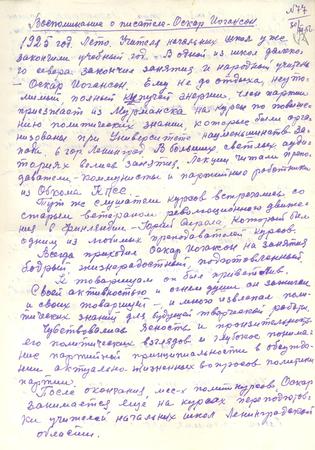 N 77
Воспоминание о писателе - Оскар Иогансон
1925 год. Лето. Учителя начальных школ уже
закончили учебный год. В одной из школ далеко-
го севера закончил занятия и народный учитель
- Оскар Иогансон. Ему не до отдыха, неуто-
мимый, полный кипучей энергии, член партии
приезжает из Мурманска на курсы по повыше-
нию политических знаний, которые были орга-
низованы при Университете нацменьшинств За-
пада в гор. Ленинград. В больших, светлых, ауди-
ториях велись занятия. Лекции читали препо-
даватели - коммунисты и партийные работники
из Обкома КПСС.
Тут же слушатели курсов встречались со
старым ветераном революционного движе-
ния в Финляндии - который был
одним из любимых преподавателей курсов.
Всегда приходил Оскар Иогансон на занятия
бодрый, жизнерадостный, подготовленный.
К товарищам он был приветлив.
Своей активностью и огнем души он зажигал
и своих товарищей - и много извлекал поли-
тических знаний для будущей творческой работы
Чувствовалась ясность и
его политических взглядов и глубокое понима-
ние партийной принципиальности в обсужде-
нии актуально-жизненных вопросов политики
партии.
После окончания, мес-х политкурсов, Оскар
занимается еще на курсах переподготов-
ки учителей начальных школ Ленинградской
области.